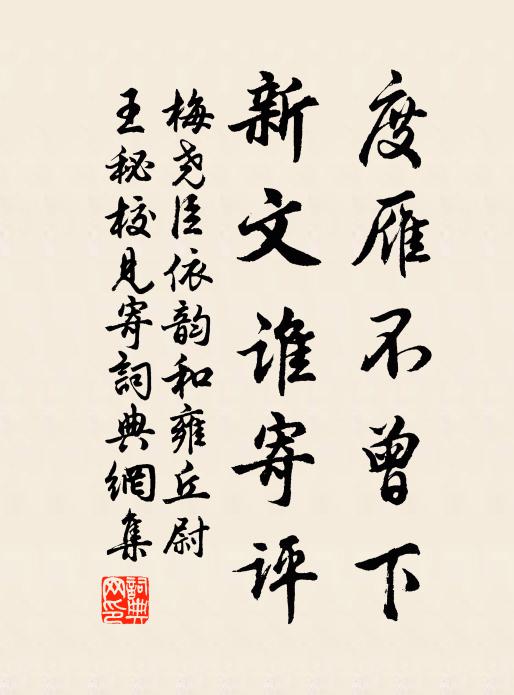 度雁不曾下
新文谁寄评
梅尧臣依韵和雍丘尉
王秘校見寄詞典網集
詞典网印